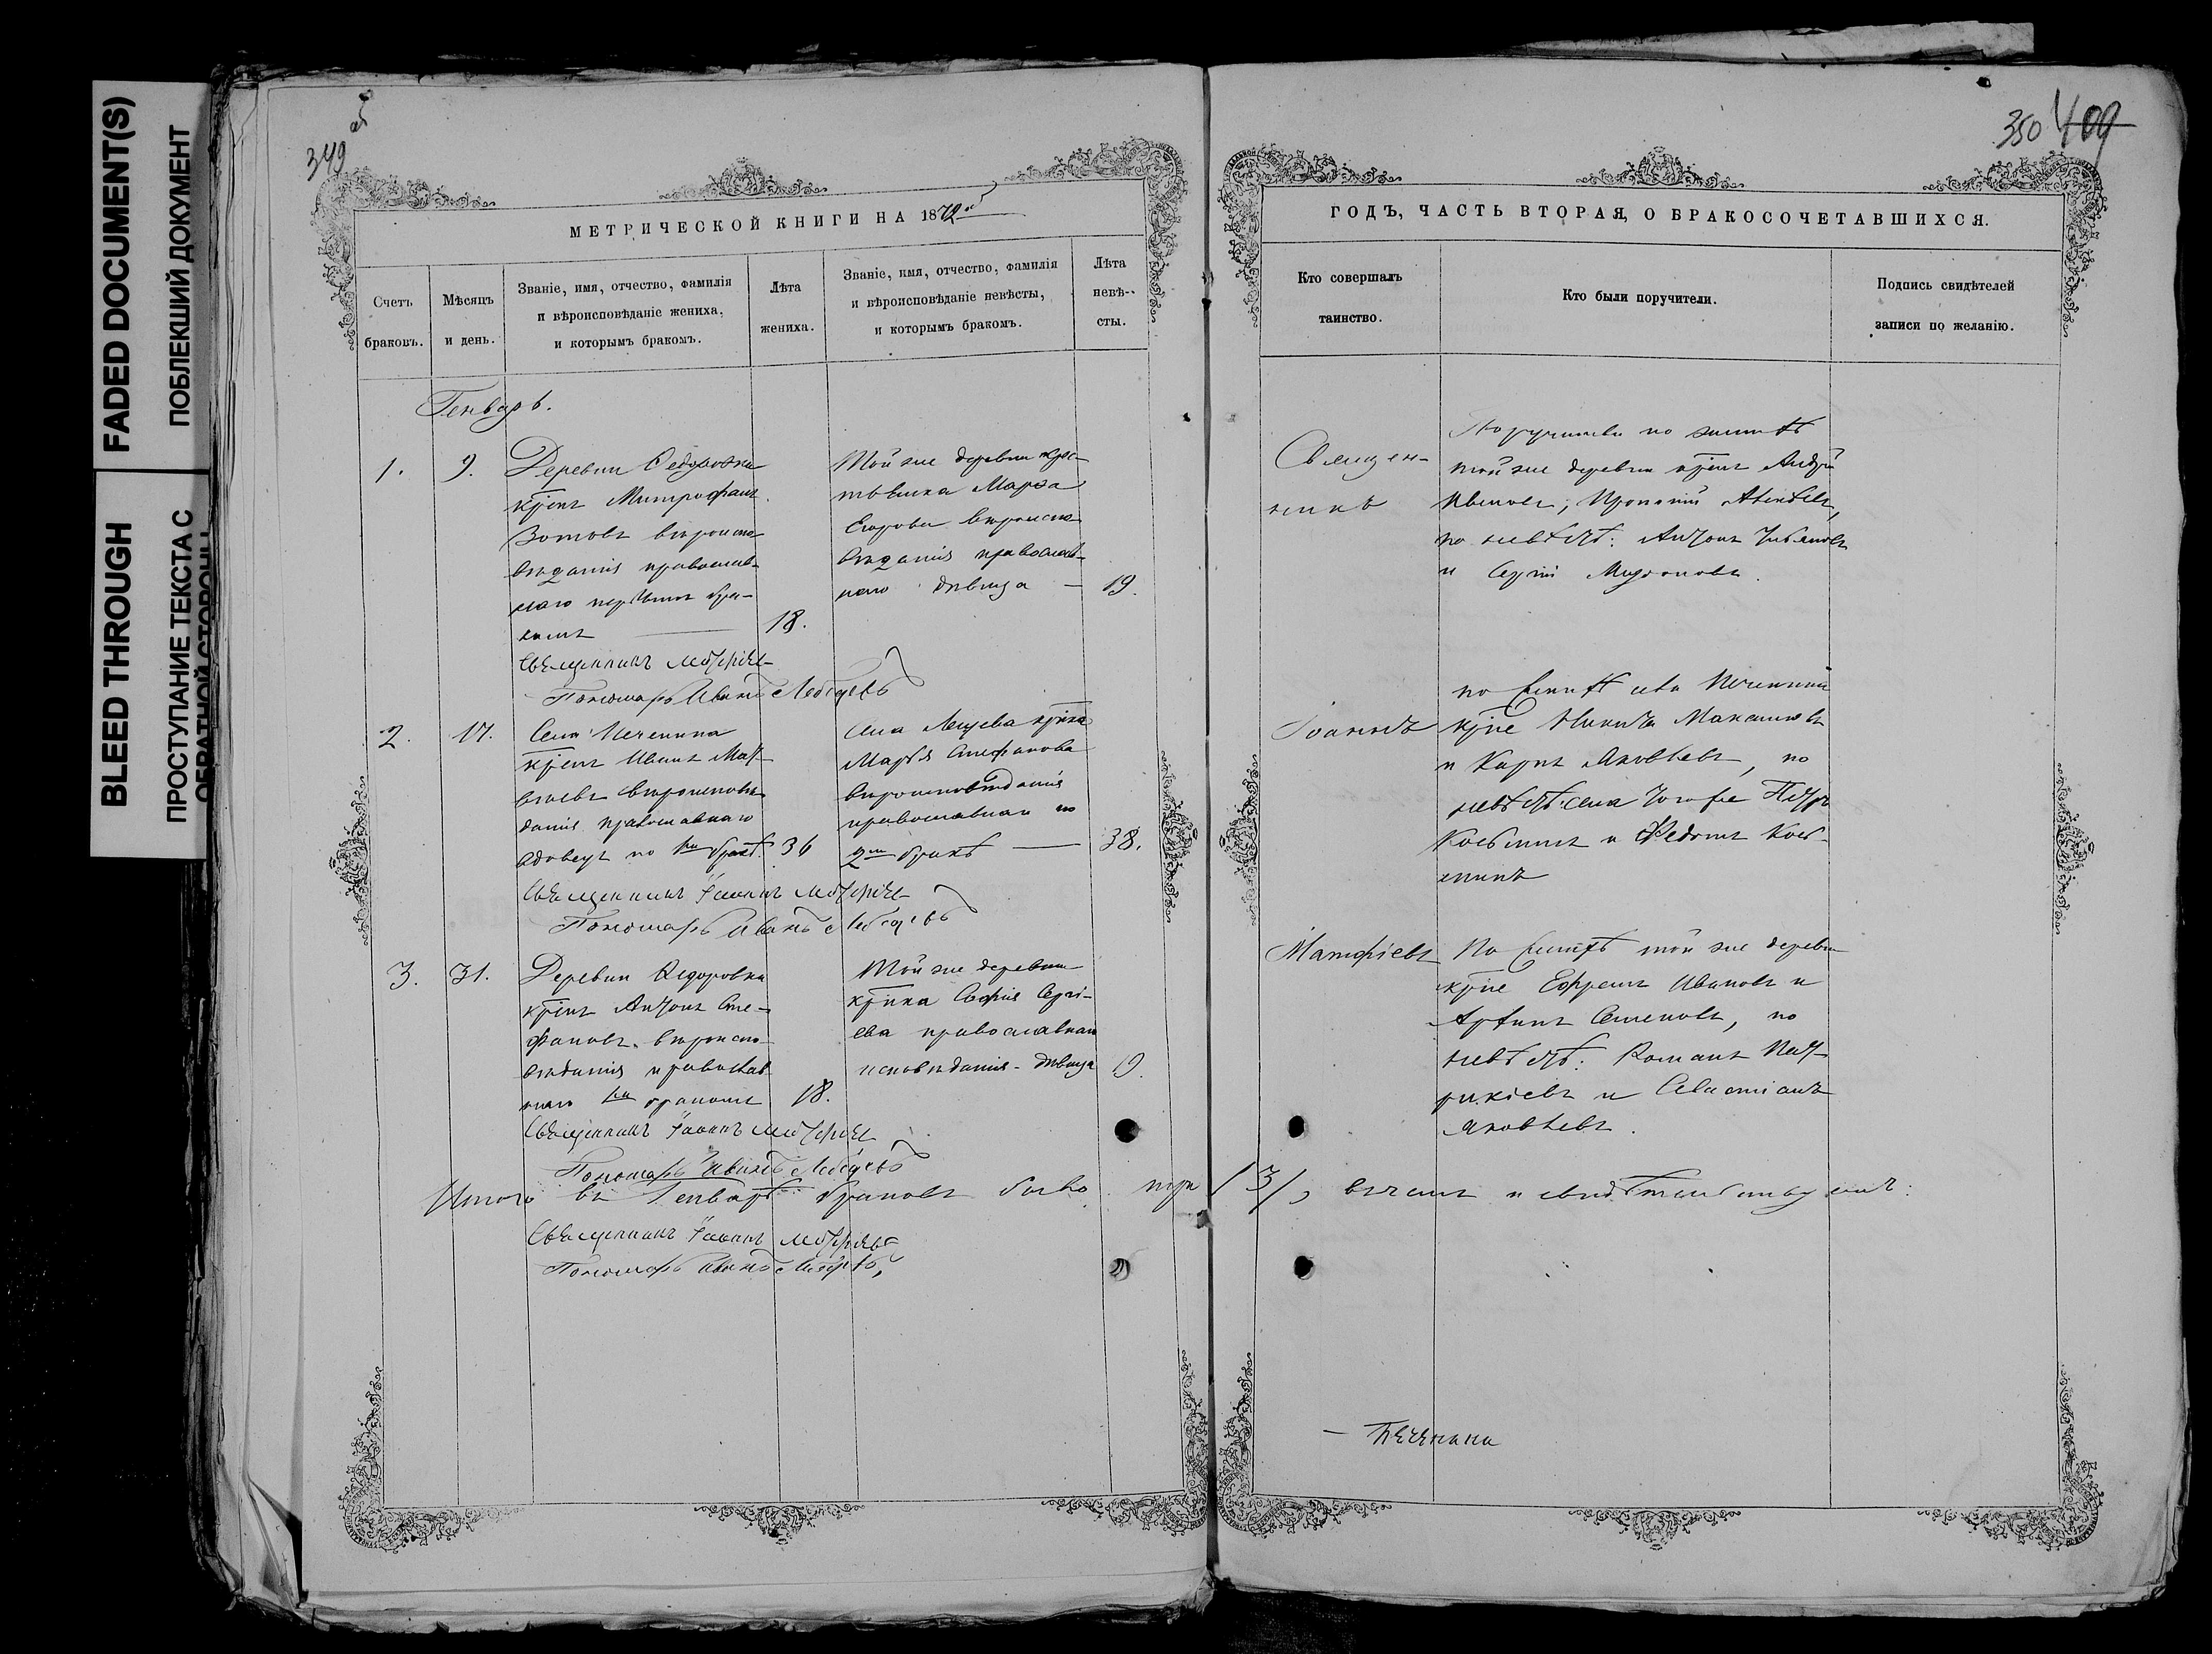 FADED DOCUMENT(S)
ПОБЛЕКШИЙ ДОКУМЕНТ
BLEED THROUGH
ПРОСТУПАНИЕ ТЕКСТА С
ОБРАТНОЙ СТОРОНЫ
349
об
МЕТРИЧЕСКОЙ КНИГИ НА 1872
Счетъ
браковъ.
Мѣсяцъ
и день.
Званіе, имя, отчество, фамилія
и вѣроисповѣданіе жениха,
и которымъ бракомъ.
Лѣта
жениха.
Званіе, имя, отчество, фамилія
и вѣроисповѣданіе невѣсты,
и которымъ бракомъ.
Лѣта
невѣ-
сты.
Генварь.
1.
9.
Деревни Ѳедоровки
крснъ Митрофанъ
Зотовъ вѣроиспо
вѣданія православ-
наго первымъ бра-
комъ
18.
Той же деревни крес-
тьянка Марѳа
Егорова вѣроиспо
вѣданія православ-
наго дѣвица
19.
Священникъ Матфіевъ
Пономарь Иванъ Лебедевъ
2.
17.
Села Печенина
крснъ Иванъ Мат-
вѣевъ вѣроисповѣ
данія православнаго
вдовецъ по 1мъ бракѣ.
36
Села крснка
Марѳа Стефанова
вѣроисповѣданія
православная по
2мъ бракѣ
38.
Священникъ Іоаннъ Матфіевъ
Пономарь Иванъ Лебедевъ
3.
31.
Деревни Ѳедоровки
крснъ Антонъ Сте-
фановъ вѣроиспо-
вѣданія православ
наго 1мъ бракомъ
18.
Той же деревни
крснка Софія Сергі-
ева православнаго
исповѣданія - дѣвица
19
Священникъ Іоаннъ Матфіевъ
Пономарь Иванъ Лебедевъ
Итого въ Генварѣ браковъ было три /3/, въ чемъ и свидѣтельствуемъ:
Священникъ Іоаннъ Матфіевъ
Пономарь Иванъ Лебедевъ
350 409
ГОДЪ, ЧАСТЬ ВТОРАЯ, О БРАКОСОЧЕТАВШИХСЯ.
Кто совершалъ
таинство.
Кто были поручители.
Подпись свидѣтелей
записи по желанію.
Священ-
никъ
Іоаннъ
Матфіевъ
Поручители по женихѣ
той же деревни крснъ Андрей
Ивановъ;
по невѣстѣ: Антонъ
и Сергій
по женихѣ села Печенина
крсне Никита Максимовъ
и Карпъ Яковлевъ, по
невѣстѣ: села Петръ
Косминъ и Ѳедотъ Кось-
минъ
По женихѣ той же деревни
крсне Ефремъ Ивановъ и
Семеновъ, по
невѣстѣ: Романъ Пат-
рикіевъ и Севастіанъ
Яковлевъ.
– Печенина